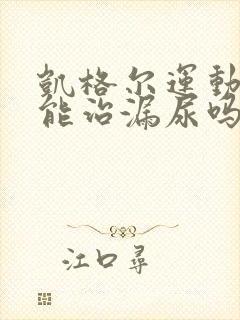 凱格尔運動
能治漏尿吗
江口尋